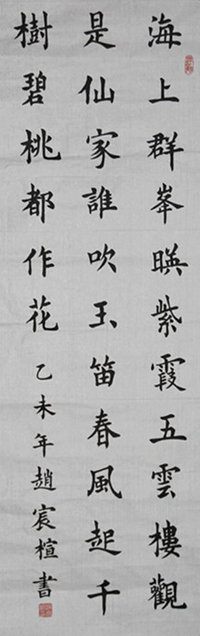 海上群峯暎紫霞五雲樓觀
是仙家誰吹玉笛春風起千
樹碧桃都作花
乙未年趙宸楦書